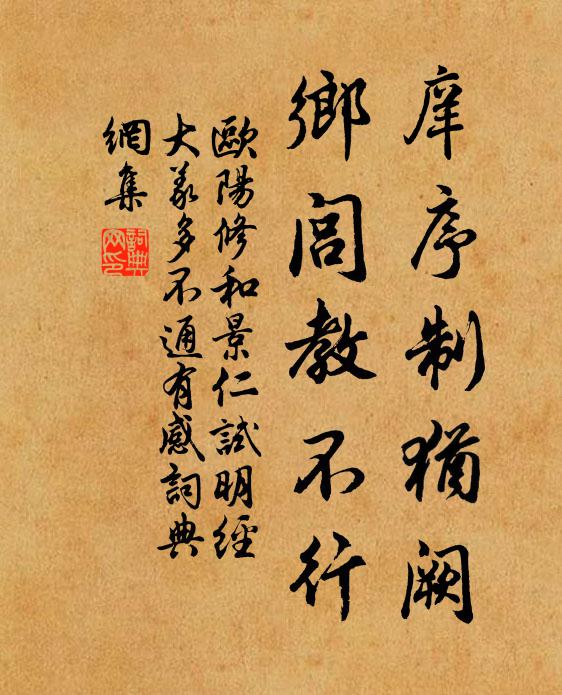 庠序制猶闕
鄉閭教不行
歐陽修和景仁試明經
大義多不通有感詞典
網集
詞典
网印